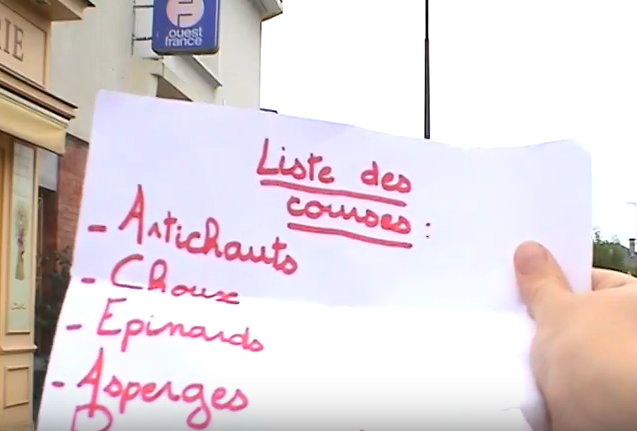 RIE
ouest
france
Liste des
courses :
- Artichauts
- Choux
- Epinards
- Asperges